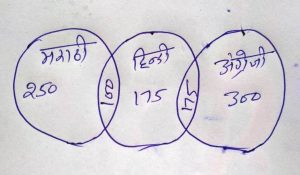 मराठी हिन्दी अंग्रेजी
250 100 175 175 300